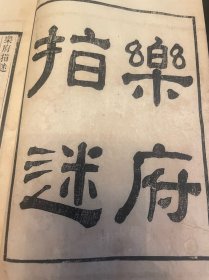 樂府
指迷
樂府指迷